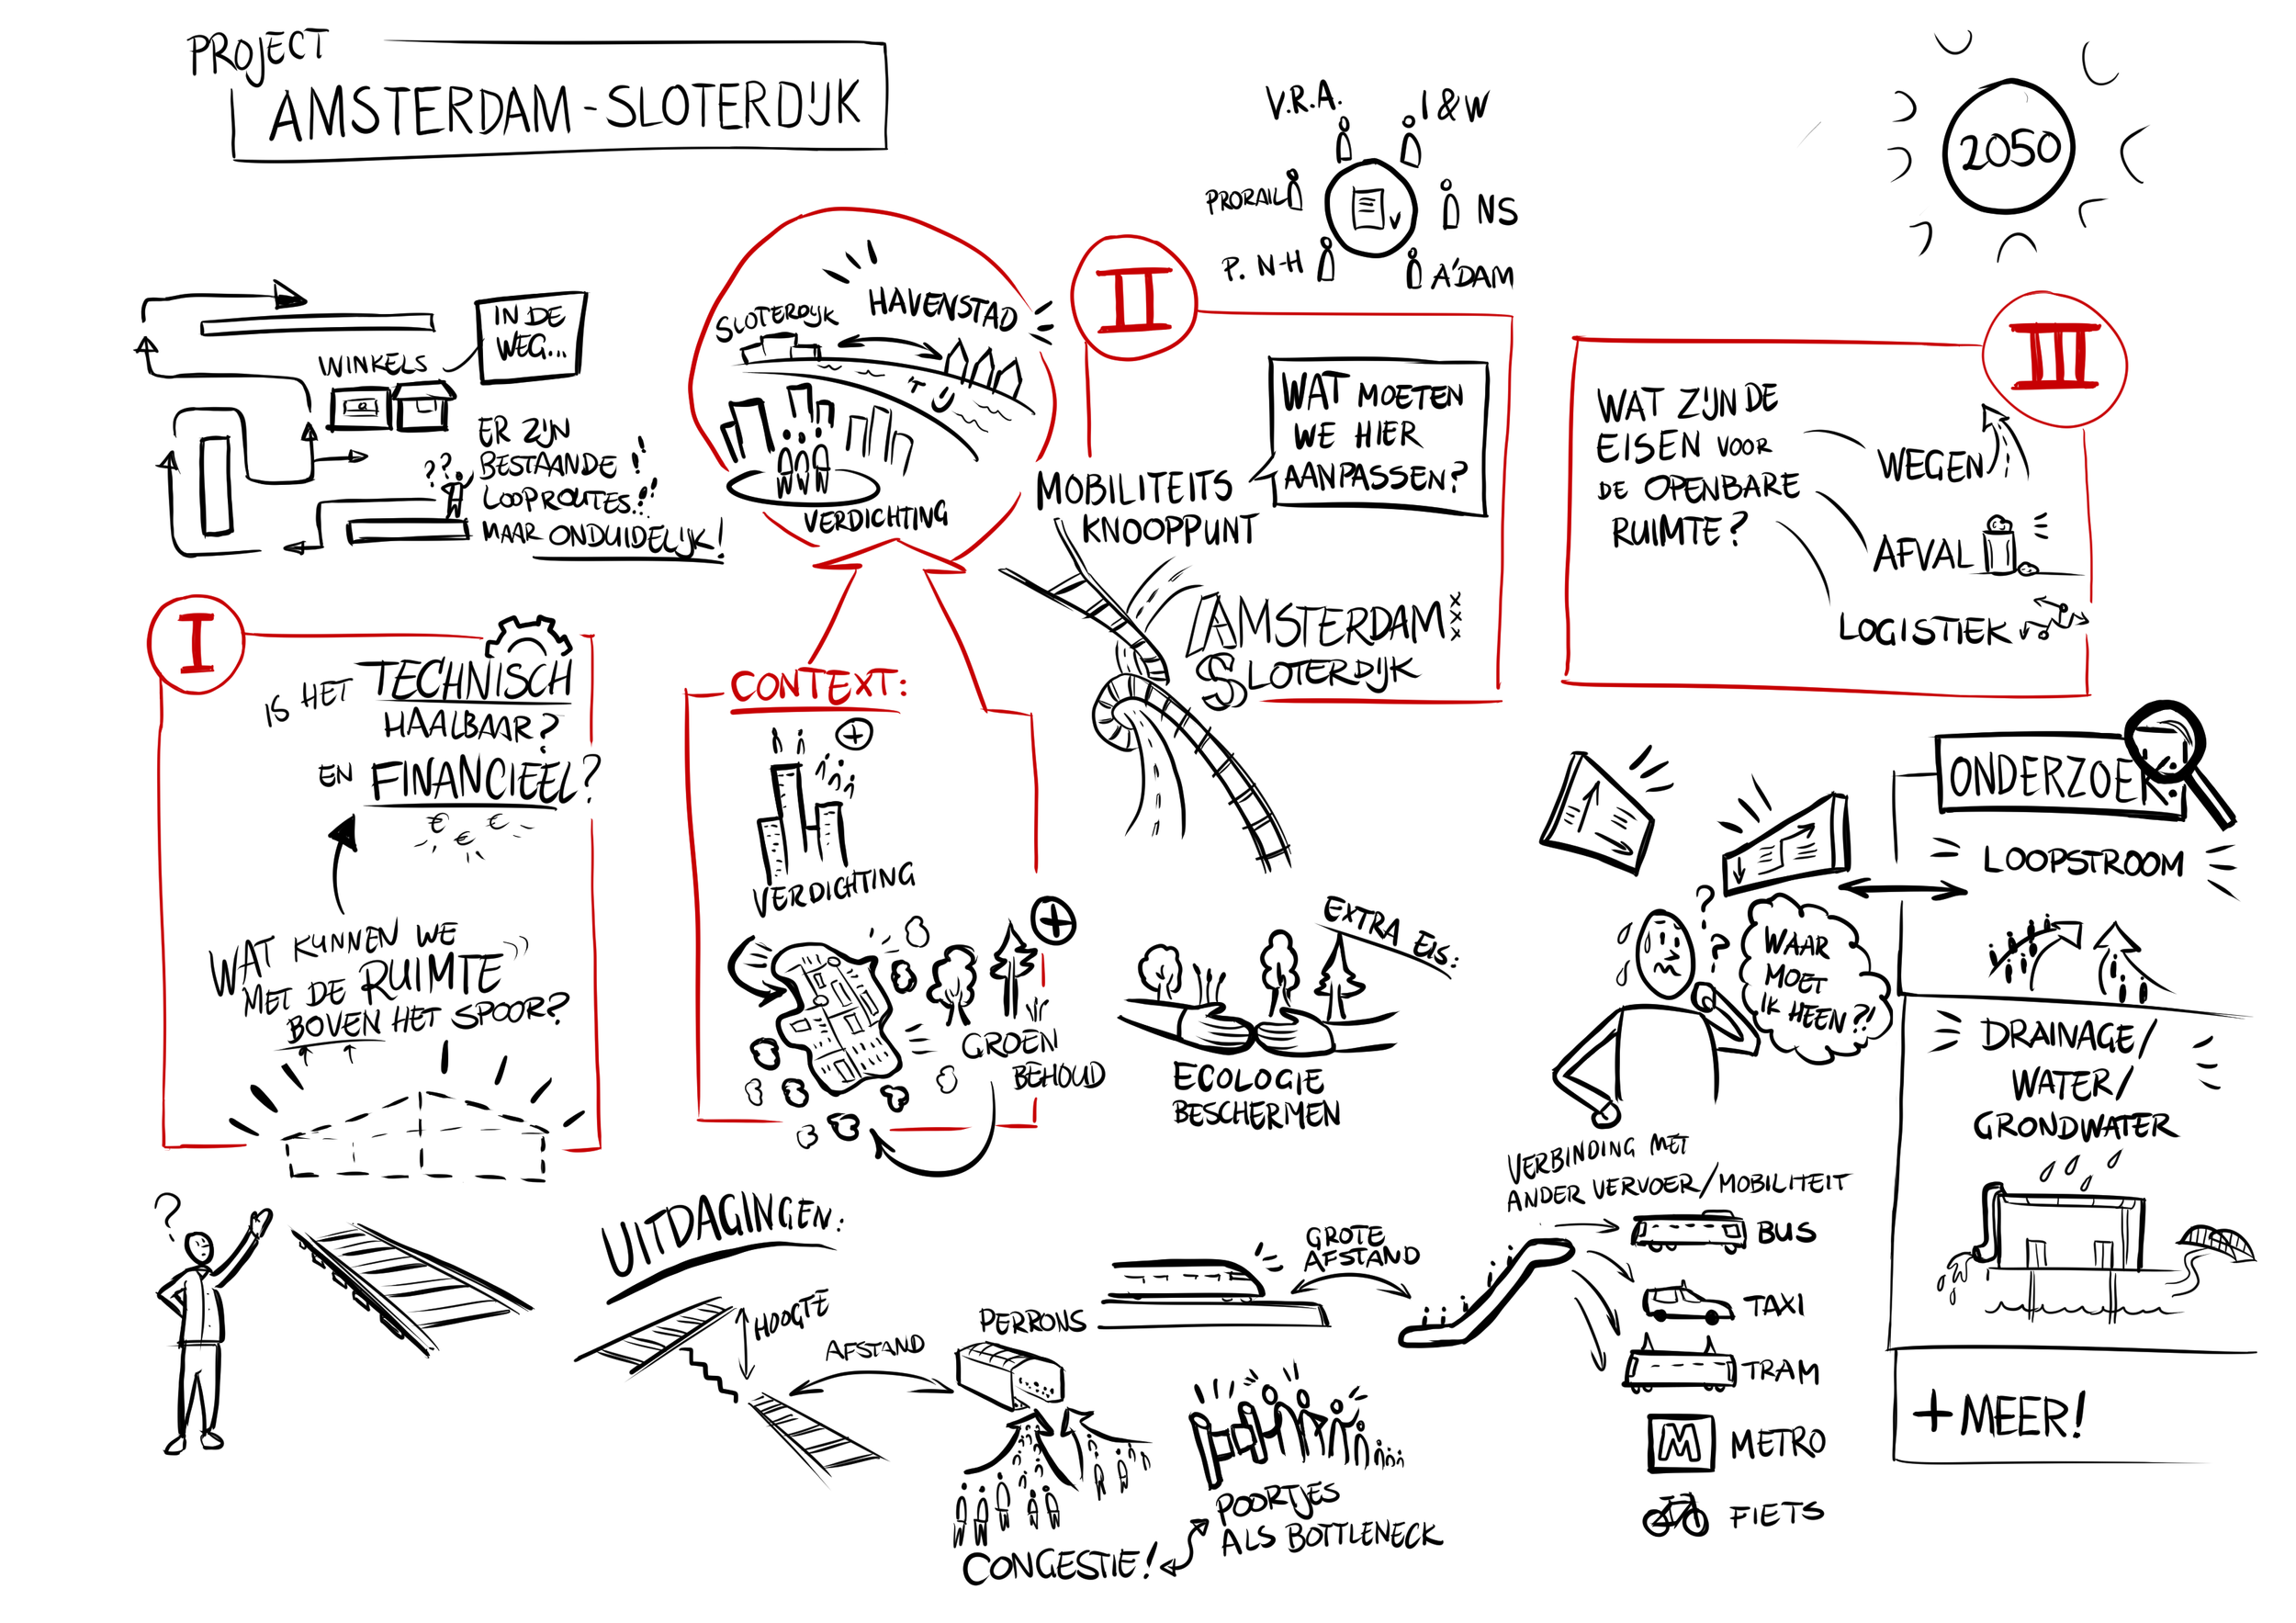 PROJECT
AMSTERDAM-SLOTERDIJK
V.R.A.
I & W
PRORAIL
NS
P. N-H
A'DAM
2050
IN DE
WEG...
WINKELS
ER ZIJN
BESTAANDE !!
LOOPROUTES..!!
MAAR ONDUIDELIJK!
??
SLOTERDIJK
HAVENSTAD
'T IJ
VERDICHTING
II
WAT MOETEN
WE HIER
AANPASSEN?
MOBILITEITS
KNOOPPUNT
AMSTERDAM
XXX
SLOTERDIJK
III
WAT ZIJN DE
EISEN VOOR
DE OPENBARE
RUIMTE?
WEGEN
AFVAL
LOGISTIEK
I
IS HET TECHNISCH
HAALBAAR?
EN FINANCIEEL?
€ € €
WAT KUNNEN WE
MET DE RUIMTE
BOVEN HET SPOOR?
?
CONTEXT:
+
VERDICHTING
+
GROEN
BEHOUD
EXTRA EIS:
ECOLOGIE
BESCHERMEN
? ?
WAAR
MOET
IK HEEN?!
ONDERZOEK:
LOOPSTROOM
DRAINAGE/
WATER/
GRONDWATER
+ MEER!
UITDAGINGEN:
HOOGTE
AFSTAND
PERRONS
GROTE
AFSTAND
CONGESTIE!
POORTJES
ALS BOTTLENECK
VERBINDING MET
ANDER VERVOER/MOBILITEIT
BUS
TAXI
TRAM
M METRO
FIETS